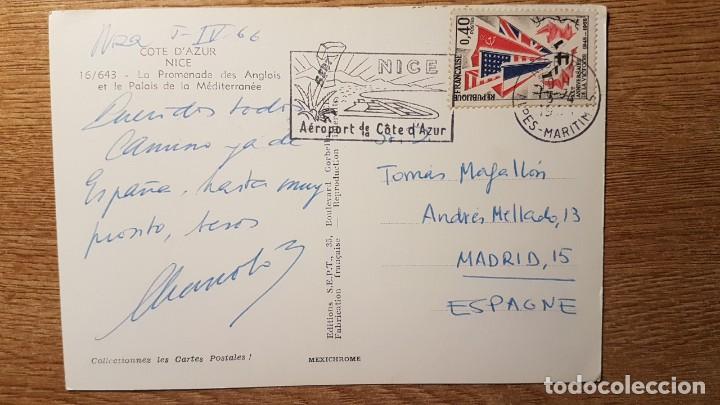 Niza 1-IV-66
CÔTE D'AZUR
NICE
16/643 - La Promenade des Anglais
et le Palais de la Méditerranée
Queridos todos
Camino ya de
España, hasta muy
pronto, besos
Manolo
Collectionnez les Cartes Postales !
Editions S.E.P.T., 35, Boulevard Gorbella
Fabrication française — Reproduction
MEXICHROME
NICE
Aéroport de la Côte d'Azur
0,40
POSTES
REPUBLIQUE FRANÇAISE
ANNIVERSAIRE
DE LA VICTOIRE 1945-1965
ALPES-MARITIMES
Tomás Magallón
Andrés Mellado, 13
MADRID, 15
ESPAGNE
todocoleccion.net